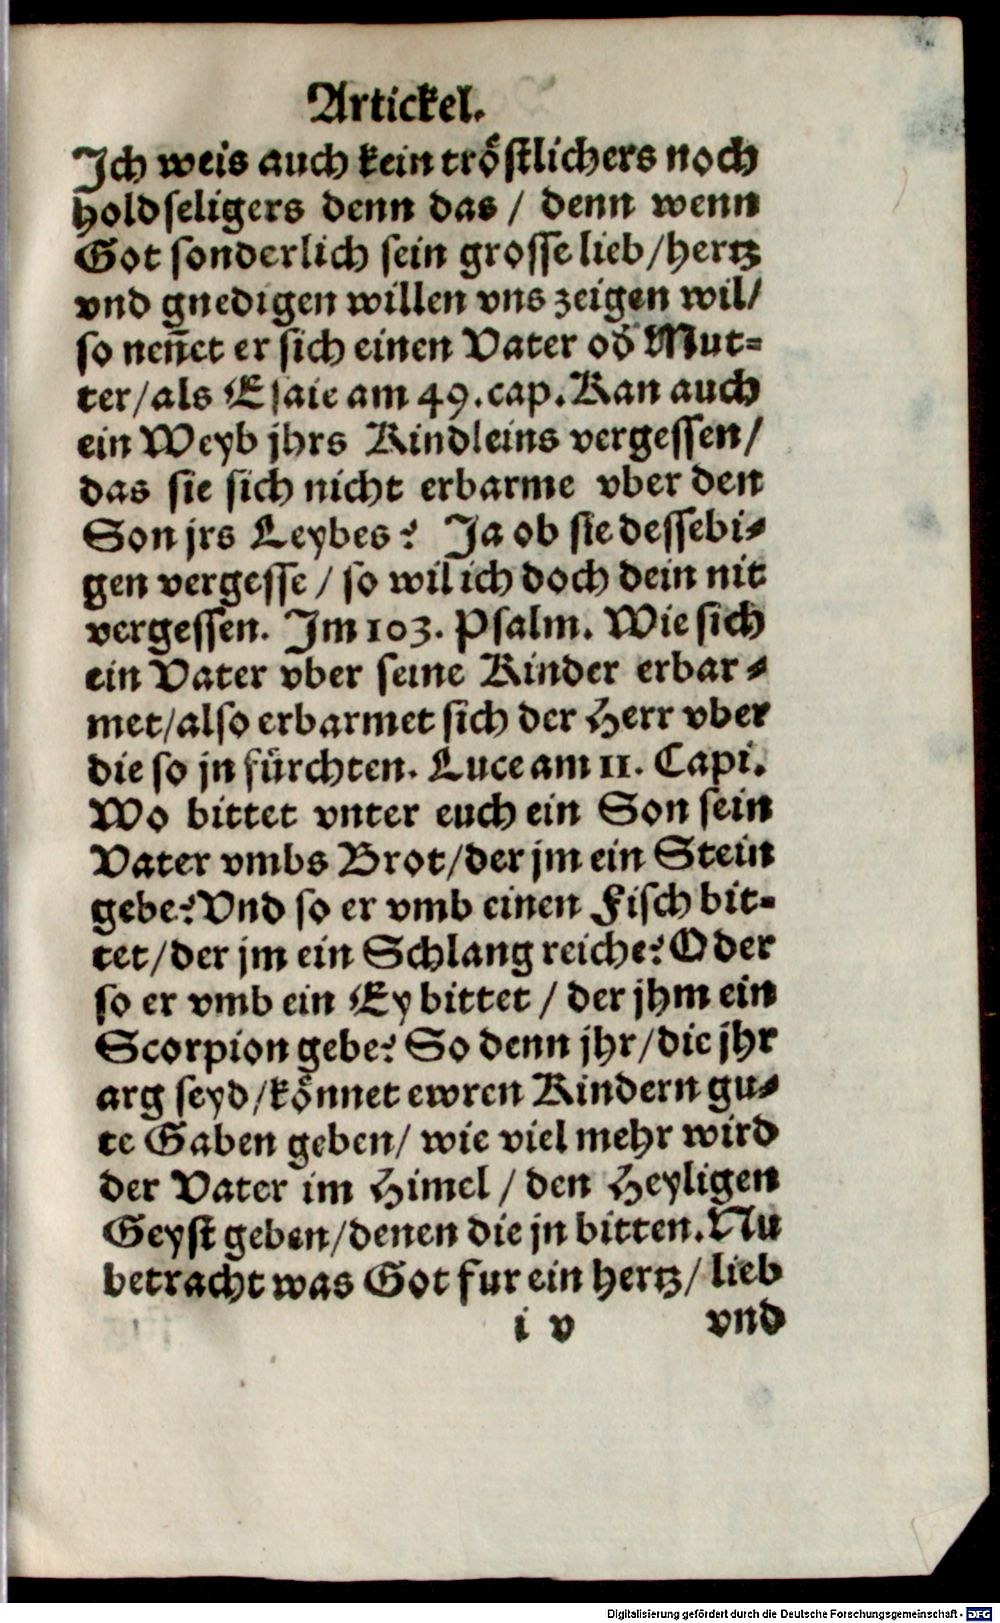 Artickel.
Ich weis auch kein tröstlichers noch
holdseligers denn das / denn wenn
Got sonderlich sein grosse lieb/hertz
vnd gnedigen willen vns zeigen wil/
so neñet er sich einen Vater od̕ Mut-
ter/als Esaie am 49.cap.Kan auch
ein Weyb jhrs Kindleins vergessen/
das sie sich nicht erbarme vber den
Son jrs Leybes? Ja ob sie dessebi-
gen vergesse / so wil ich doch dein nit
vergessen. Im 103. Psalm. Wie sich
ein Vater vber seine Kinder erbar-
met/also erbarmet sich der Herr vber
die so jn fürchten. Luce am 11. Capi.
Wo bittet vnter euch ein Son sein
Vater vmbs Brot/der jm ein Stein
gebe?Vnd so er vmb einen Fisch bit-
tet/der jm ein Schlang reiche?Oder
so er vmb ein Ey bittet / der jhm ein
Scorpion gebe? So denn jhr/die jhr
arg seyd/könnet ewren Kindern gu-
te Gaben geben/ wie viel mehr wird
der Vater im Himel / den Heyligen
Geyst geben/denen die jn bitten.Nu
betracht was Got fur ein hertz/ lieb
i v vnd
Digitalisierung gefördert durch die Deutsche Forschungsgemeinschaft - DFG